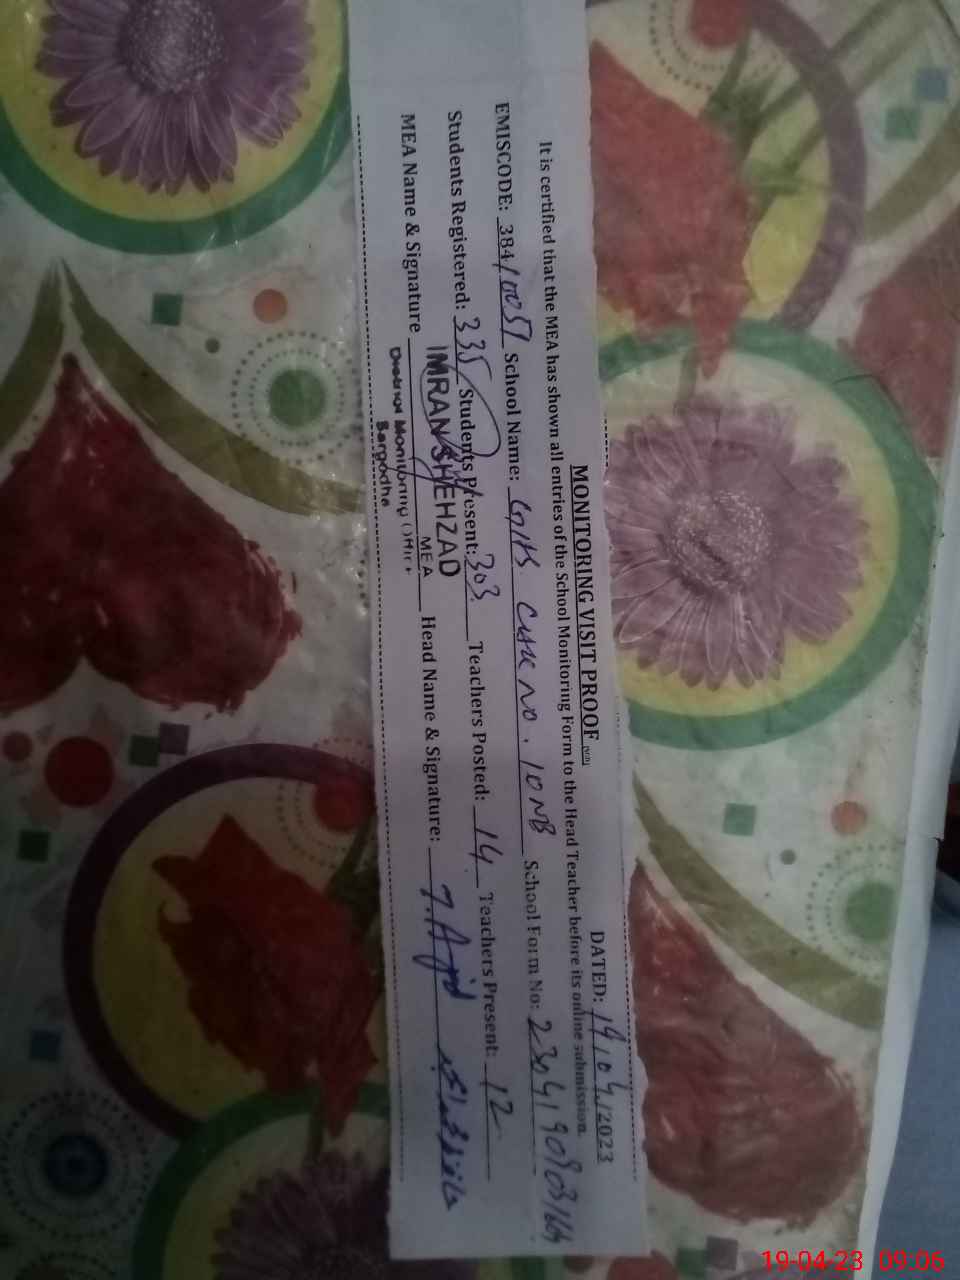 MONITORING VISIT PROOF
DATED: 19/04/2023
It is certified that the MEA has shown all entries of the School Monitoring Form to the Head Teacher before its online submission.
EMISCODE: 384/0051 School Name: GHS Chak No. 10 NB School Form No:
Students Registered: 335 Students Present: 303 Teachers Posted: 14 Teachers Present: 12
MEA Name & Signature IMRAN SHEHZAD Head Name & Signature:
MEA
District Monitoring Office
Sargodha
19-04-23 09:06